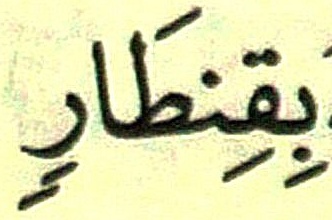 بِقِنطَارٍ